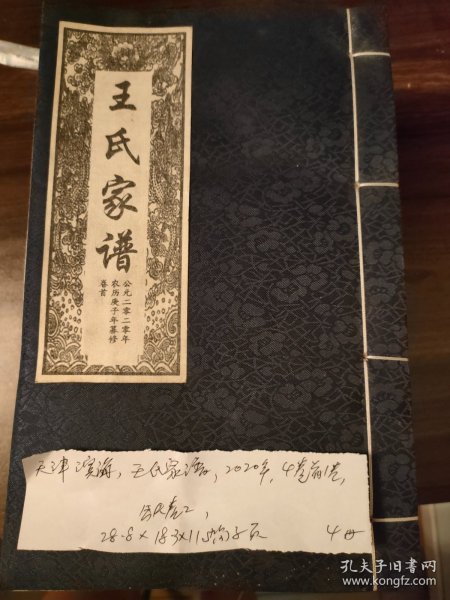 王氏家谱
公元二零二零年
农历庚子年纂修
卷首
天津滨海，王氏家谱，2020年，4卷首1卷，
28.8×18.3×11
4册
孔夫子旧书网
www.kongfz.com